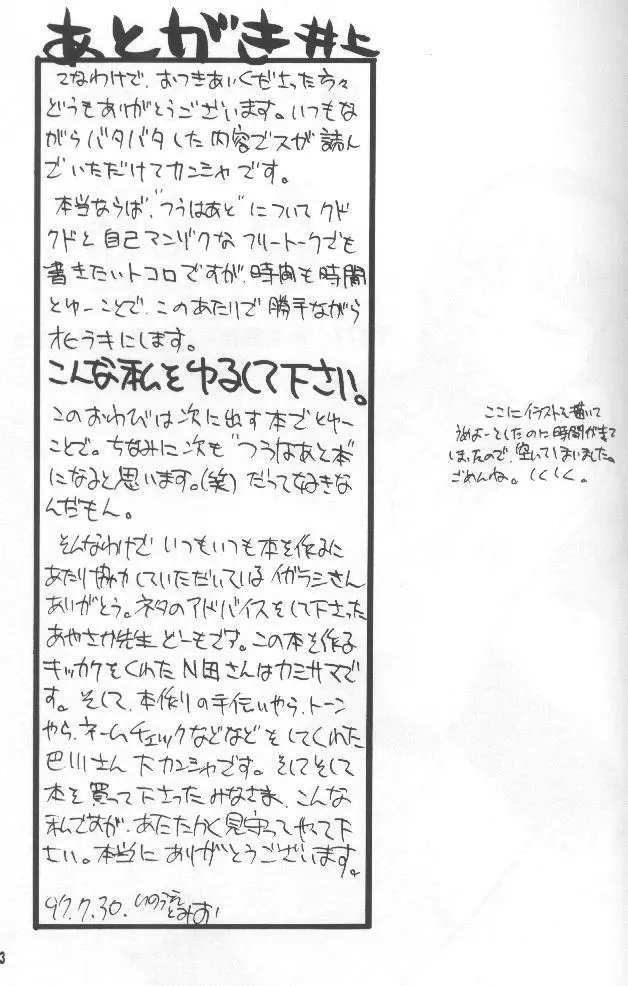 あとがき 井上
てなわけで、おつきあいくださった方々
どうもありがとうございます。いつもな
がらバタバタした内容でスが読ん
でいただけてカンシャです。
本当ならば、"つうはあと"について クド
クドと 自己マンゾクな フリートークでも
書きたいトコロですが、時間も時間
とゆーことで、このあたりで 勝手ながら
オヒラキにします。
こんな私をゆるして下さい。
このおわびは次に出す本でとゆー
ことで。ちなみに次も"つうはあと本"
になると思います。(笑) だって好きな
んだもん。
そんなわけで いつもいつも本を作るに
あたり協力していただいている イガラシさん
ありがとう。ネタのアドバイスをして下さった
あやさか先生 どーもです。この本を作る
キッカケをくれた N田さんはカミサマで
す。そして、本作りの手伝いやら、トーン
やら、ネームチェックなどなど をしてくれた
巴川さん 大カンシャです。そしてそして
本を買って下さった みなさま、こんな
私ですが、あたたかく見守ってやって下
さい。本当に ありがとうございます。
97.7.30. いのうえ
とみお
ここに イラストを描いて
うめよーとしたのに 時間が来て
しまったので、空いてしまいました。
ごめんね。しくしく。
3